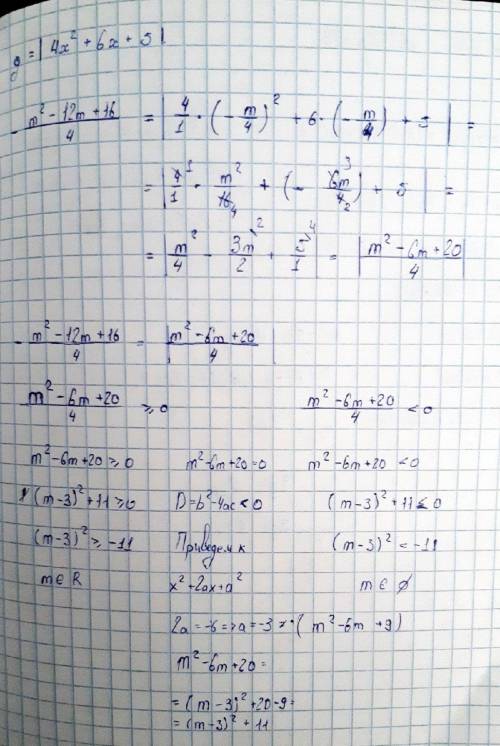 y = |4x² + 6x + 5|
- (m² - 12m + 16)/4 = |4/1 · (-m/4)² + 6 · (-m/4) + 5| =
= |4/1 · m²/16 + (- 6m/4) + 5| =
= |m²/4 - 3m/2 + 5/1| = |(m² - 6m + 20)/4|
- (m² - 12m + 16)/4 = |(m² - 6m + 20)/4|
(m² - 6m + 20)/4 ≥ 0 (m² - 6m + 20)/4 < 0
m² - 6m + 20 ≥ 0 m² - 6m + 20 = 0 m² - 6m + 20 < 0
(m - 3)² + 11 ≥ 0 D = b² - 4ac < 0 (m - 3)² + 11 < 0
(m - 3)² ≥ -11 Приведем к (m - 3)² < -11
m ∈ R x² + 2ax + a² m ∈ ∅
2a = -6 => a = -3 (m² - 6m + 9)
m² - 6m + 20 =
= (m - 3)² + 20 - 9 =
= (m - 3)² + 11